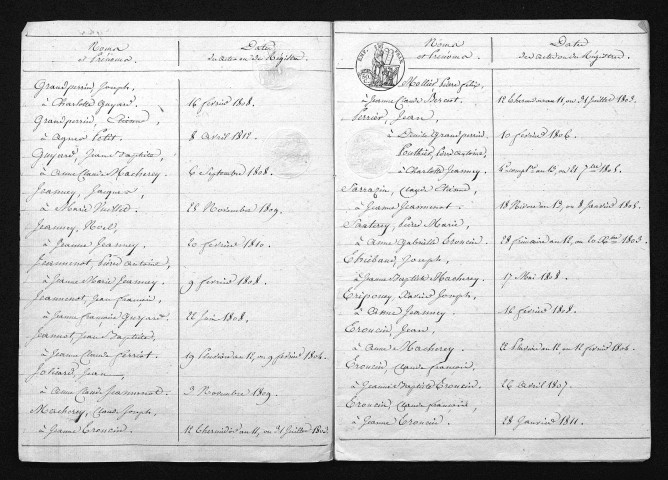 Noms
et Prénoms
Dates
des actes ou du Régistre
Grandperrin Joseph,
à Charlotte Guyard.
16 février 1808.
Grandperrin, Etienne,
à Agnès Petit.
8 Avril 1812.
Guyard, Jean Baptiste,
à Anne Claude Macherey.
6 Septembre 1808.
Jeanney, Jacques,
à Marie
28 Novembre 1809.
Jeanney, Noël,
à Jeanne Jeanney.
20 février 1810.
Jeannenot, Pierre Antoine,
à Jeanne Marie Jeanney.
9 février 1808.
Jeannenot, Jean François,
à Jeanne Françoise Guyard.
22 Juin 1808.
Jeannot, Jean Baptiste,
à Jeanne Claude Perriot.
19 Pluviôse an 12, ou 9 février 1804.
Joliard, Jean,
à Anne Claude Jeannenot.
Novembre 1809.
Macherey, Claude Joseph,
à Jeanne Troncin.
12 Thermidor an 11, ou 31 Juillet 1803.
Noms
et Prénoms
Dates
des actes ou du Régistre
Mollier, Pierre Félix,
à Jeanne Claude
12 Thermidor an 11, ou 31 Juillet 1803.
Perrier, Jean,
à Denise Grandperrin.
10 février 1806.
Pouthier, Pierre Antoine,
à Charlotte Jeanney.
Sarrazin, Claude Etienne,
à Jeanne Jeannenot.
18 Nivôse an 13, ou 8 Janvier 1805.
Sauterey, Pierre Marie,
à Anne Gabrielle Troncin.
28 frimaire an 12, ou 20 Xbre 1803.
Thiebaud, Joseph,
à Jeanne Baptiste Macherey.
17 Mai 1808.
Triponey, Xavier Joseph,
à Anne Jeanney.
16 février 1808.
Troncin, Jean,
à Anne Macherey.
22 Pluviôse an 12, ou 12 février 1804.
Troncin, Claude François,
à Jeanne Baptiste Troncin.
22 Avril 1807.
Troncin, Claude François,
à Jeanne Troncin.
28 Janvier 1811.